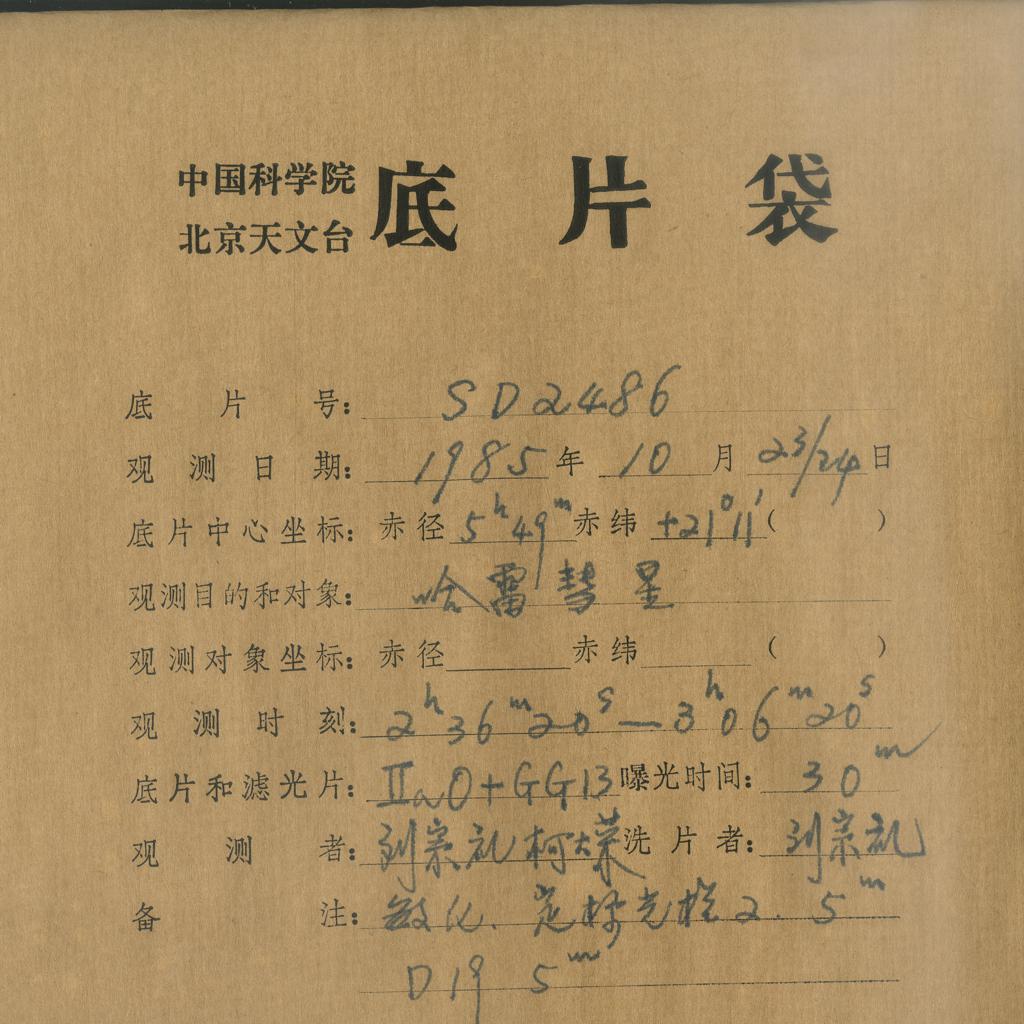 中国科学院
北京天文台
底片袋
底片号: SD2486
观测日期: 1985年 10月 23/24日
底片中心坐标: 赤径 5h49m 赤纬 +21°11′ ( )
观测目的和对象: 哈雷彗星
观测对象坐标: 赤径 赤纬 ( )
观测时刻: 2h36m20s — 3h06m20s
底片和滤光片: IIaO+GG13 曝光时间: 30m
观测者: 刘宗礼 柯大荣 洗片者: 刘宗礼
备注: 敏化、定标光栏2. 5m
D19 5m